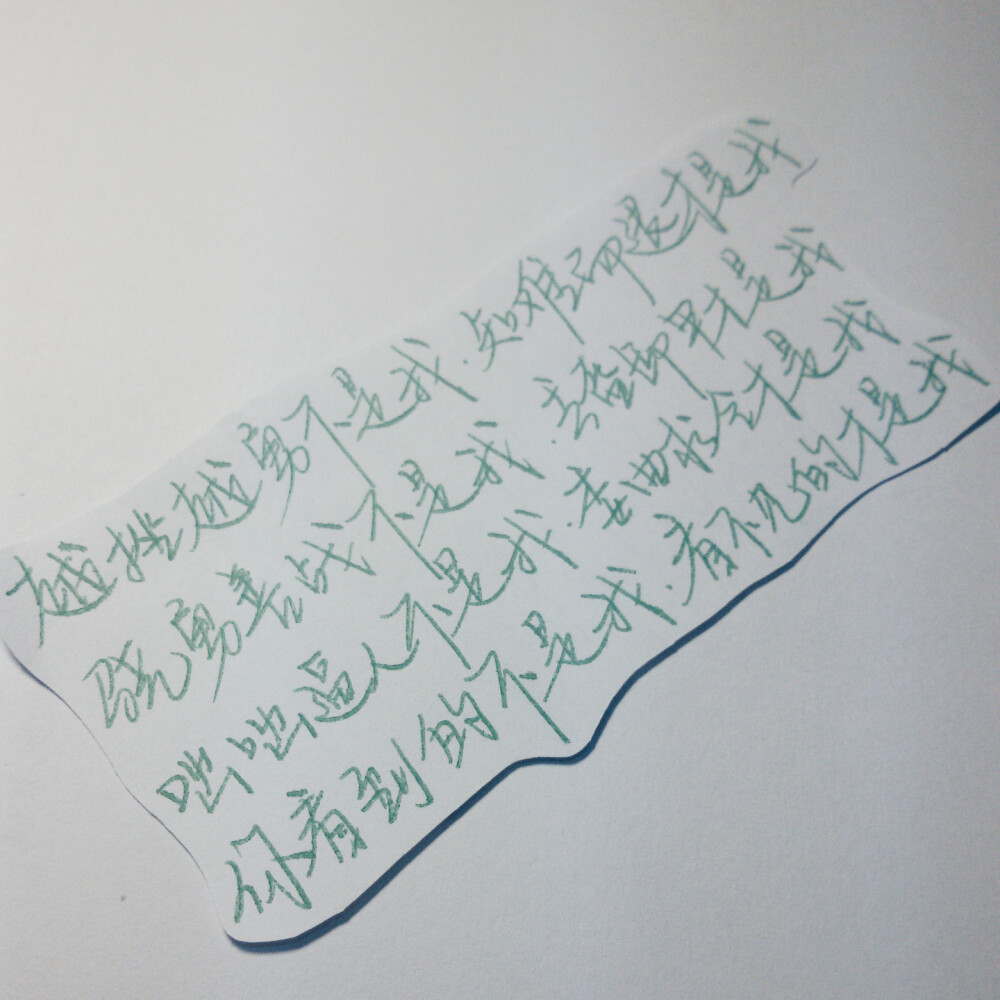 越挫越勇不是我.知难而退才是我
骁勇善战不是我.去蛋即卑才是我
咄咄逼人不是我.委曲求全才是我
你看到的不是我.看不见的才是我